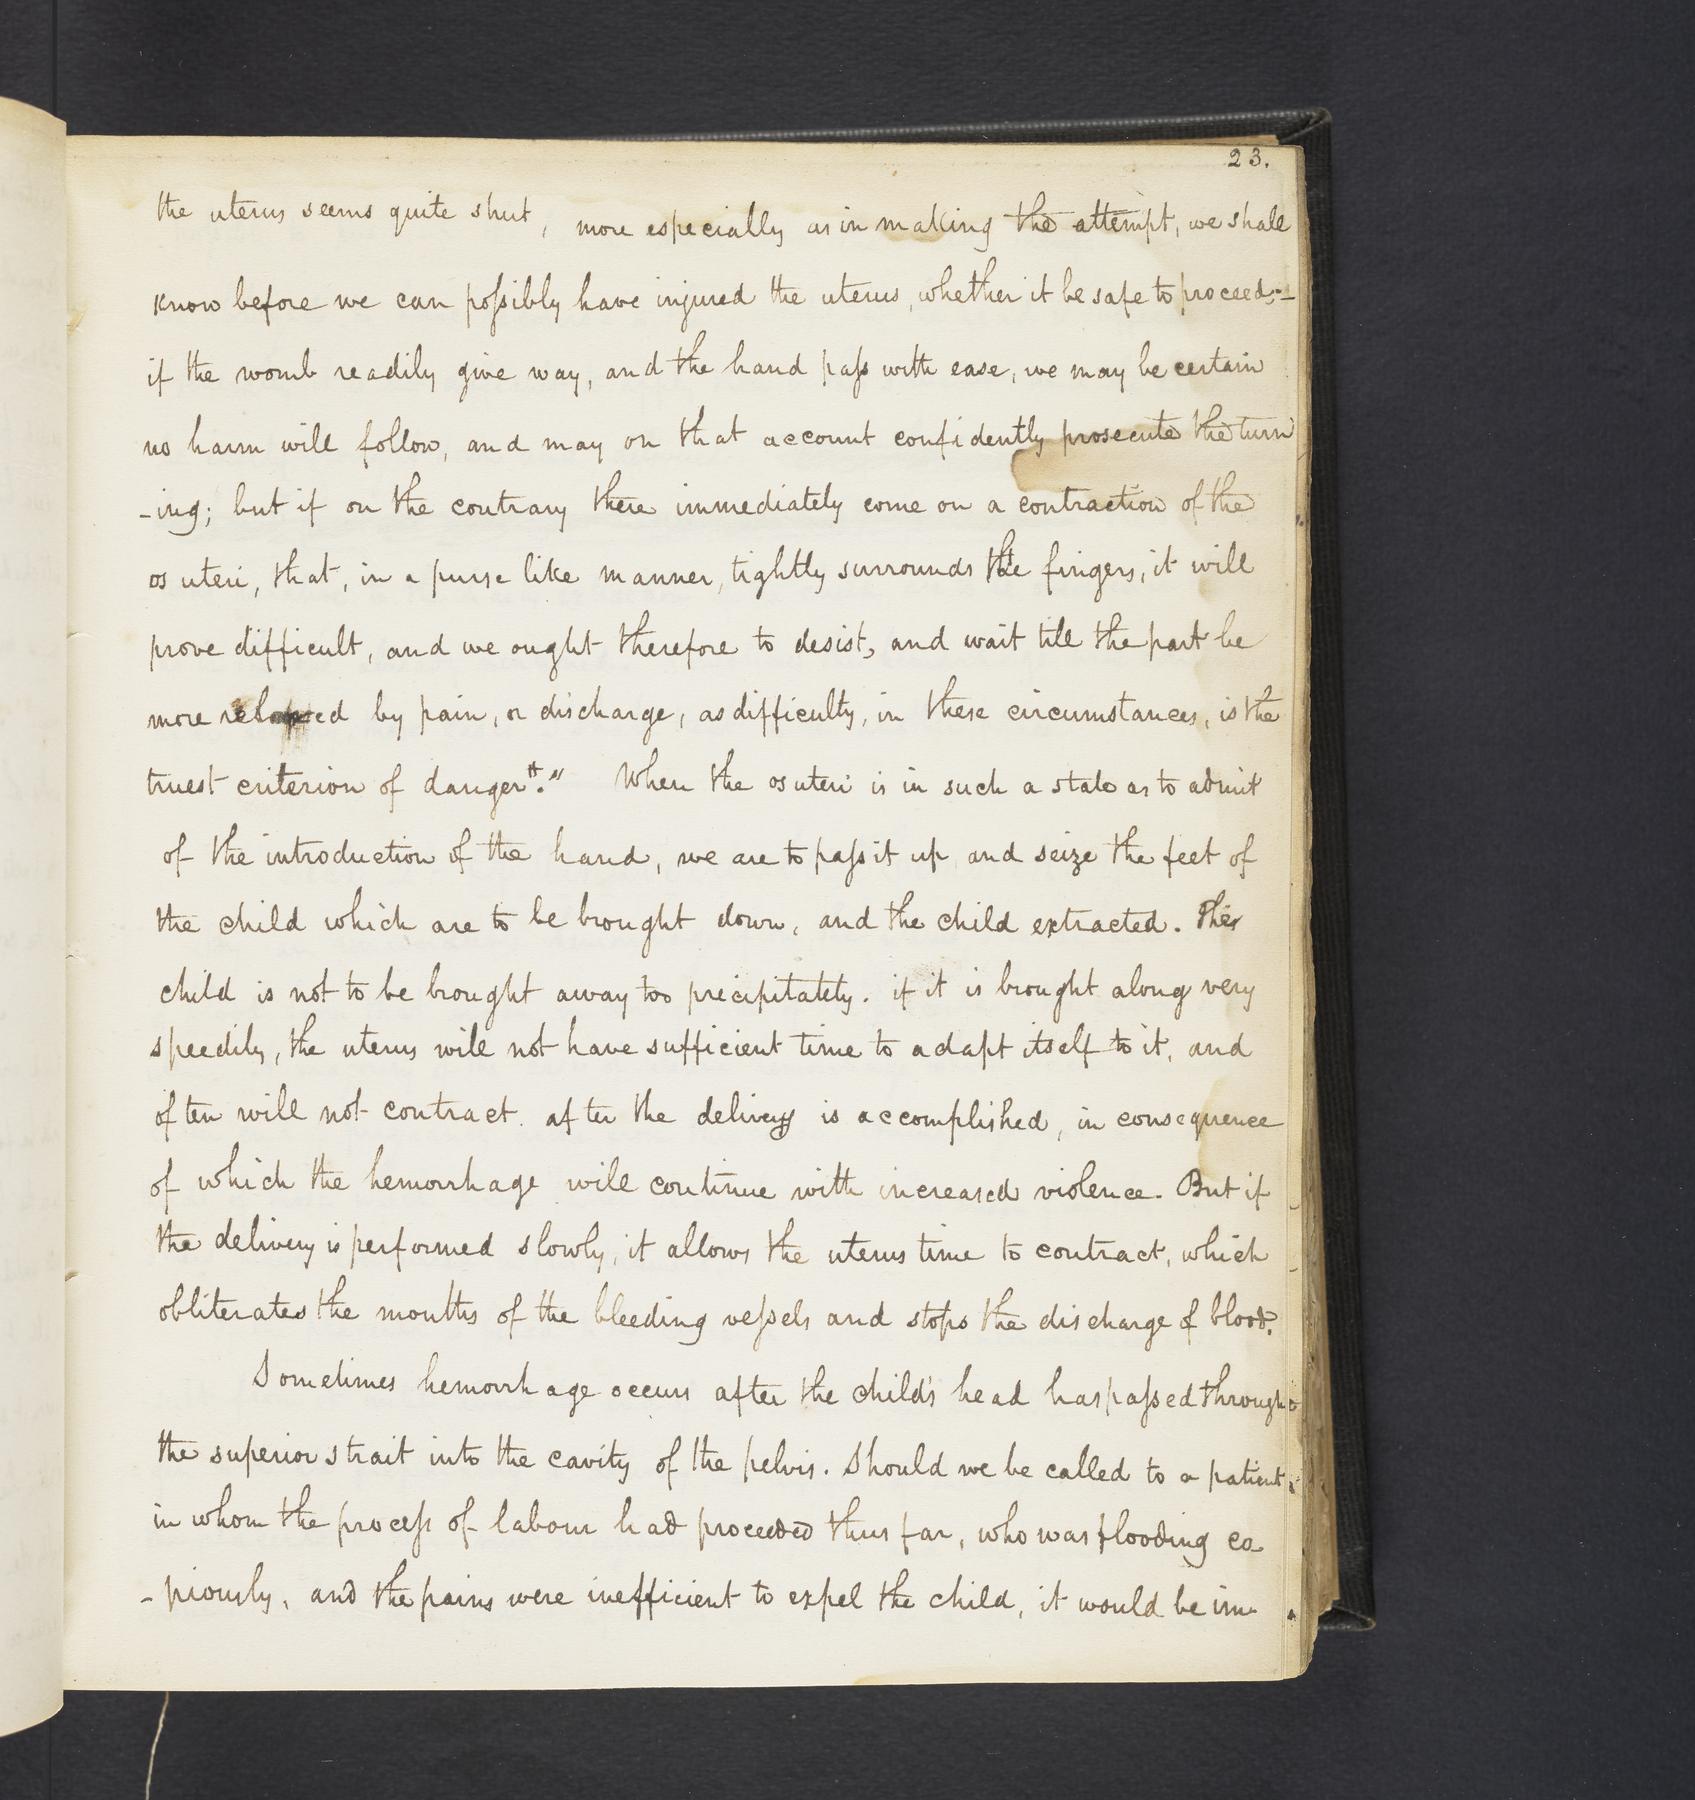 23.
the uterus seems quite shut, more especially as in making the attempt, we shall
know before we can possibly have injured the uterus, whether it be safe to proceed;-
if the womb readily give way, and the hand pass with ease, we may be certain
no harm will follow, and may on that account confidently prosecute the turn
-ing; but if on the contrary there immediately come on a contraction of the
os uteri, that, in a purse like manner, tightly surrounds the fingers, it will
prove difficult, and we ought therefore to desist, and wait till the part be
more relaxed by pain, or discharge, as difficulty, in these circumstances, is the
truest criterion of danger*." When the os uteri is in such a state as to admit
of the introduction of the hand, we are to pass it up and seize the feet of
the child which are to be brought down, and the child extracted. The
child is not to be brought away too precipitately. if it is brought along very
speedily, the uterus will not have sufficient time to adapt itself to it, and
often will not contract after the delivery is accomplished, in consequence
of which the hemorrhage will continue with increased violence. But if
the delivery is performed slowly, it allows the uterus time to contract, which
obliterates the mouths of the bleeding vessels and stops the discharge of blood.
Sometimes hemorrhage occurs after the child's head has passed through
the superior strait into the cavity of the pelvis. Should we be called to a patient
in whom the process of labour had proceeded thus far, who was flooding co
-piously, and the pains were inefficient to expel the child, it would be im-